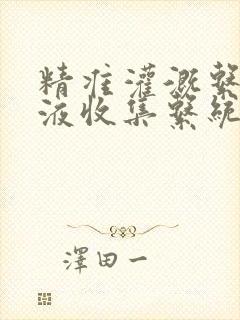 精准灌溉繫
液收集繫統
澤田一